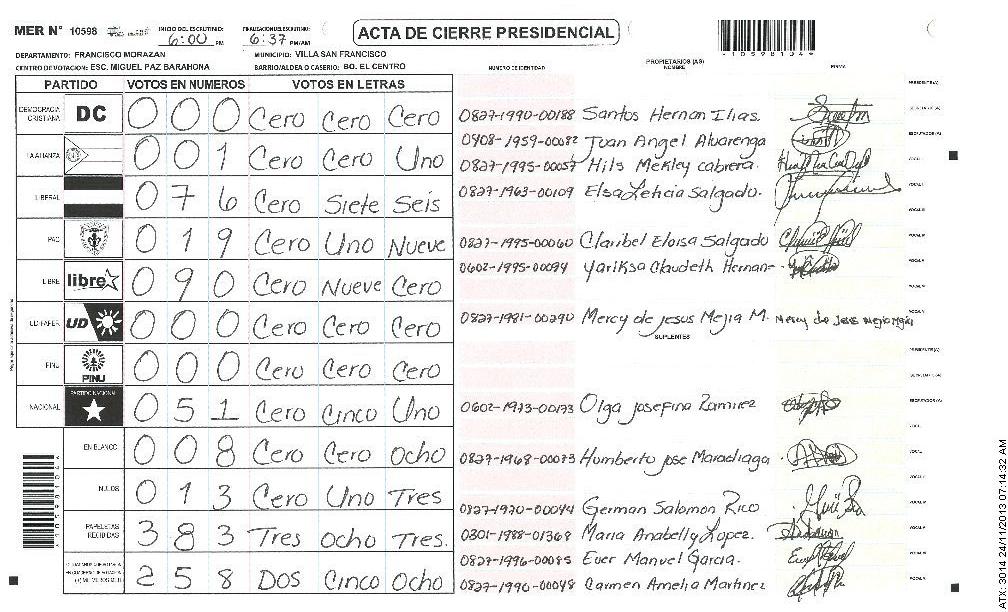 MER N° 10598 INICIO DEL ESCRUTINIO: 6:00 PM FINALIZACION DEL ESCRUTINIO: 6:37 PM/AM ACTA DE CIERRE PRESIDENCIAL
DEPARTAMENTO: FRANCISCO MORAZAN MUNICIPIO: VILLA SAN FRANCISCO
CENTRO DE VOTACION: ESC. MIGUEL PAZ BARAHONA BARRIO/ALDEA O CASERIO: BO. EL CENTRO
NUMERO DE IDENTIDAD PROPIETARIOS (AS) NOMBRE FIRMA
PARTIDO VOTOS EN NUMEROS VOTOS EN LETRAS
DEMOCRACIA CRISTIANA DC 0 0 0 Cero Cero Cero
LA ALIANZA 0 0 1 Cero Cero Uno
LIBERAL 0 7 6 Cero Siete Seis
PAC 0 1 9 Cero Uno Nueve
LIBRE libre 0 9 0 Cero Nueve Cero
UD-FAPER UD 0 0 0 Cero Cero Cero
PINU PINU 0 0 0 Cero Cero Cero
NACIONAL PARTIDO NACIONAL 0 5 1 Cero Cinco Uno
EN BLANCO 0 0 8 Cero Cero Ocho
NULOS 0 1 3 Cero Uno Tres
PAPELETAS RECIBIDAS 3 8 3 Tres Ocho Tres.
2 5 8 Dos Cinco Ocho
0827-1990-00188 Santos Hernan Ilias.
0408-1959-00082 Juan Angel Alvarenga
0827-1995-00057 Hils Mekley Cabrera.
0827-1963-00109 Elsa Leticia Salgado.
0827-1995-00060 Claribel Eloisa Salgado
0602-1995-00094 Yariksa Claudeth Hernan-
0827-1981-00290 Mercy de Jesus Mejia M. Mercy de Jesus Mejia Mejia
SUPLENTES
0602-1973-00173 Olga Josefina Ramirez
0827-1968-00073 Humberto Jose Maradiaga
0827-1970-00044 German Salomon Rico
0301-1988-01368 Maria Anabelly Lopez.
0827-1996-00085 Euer Manuel Garcia.
0827-1990-00048 Carmen Amelia Martinez
ATX-3014 24/11/2013 07:14:32 AM